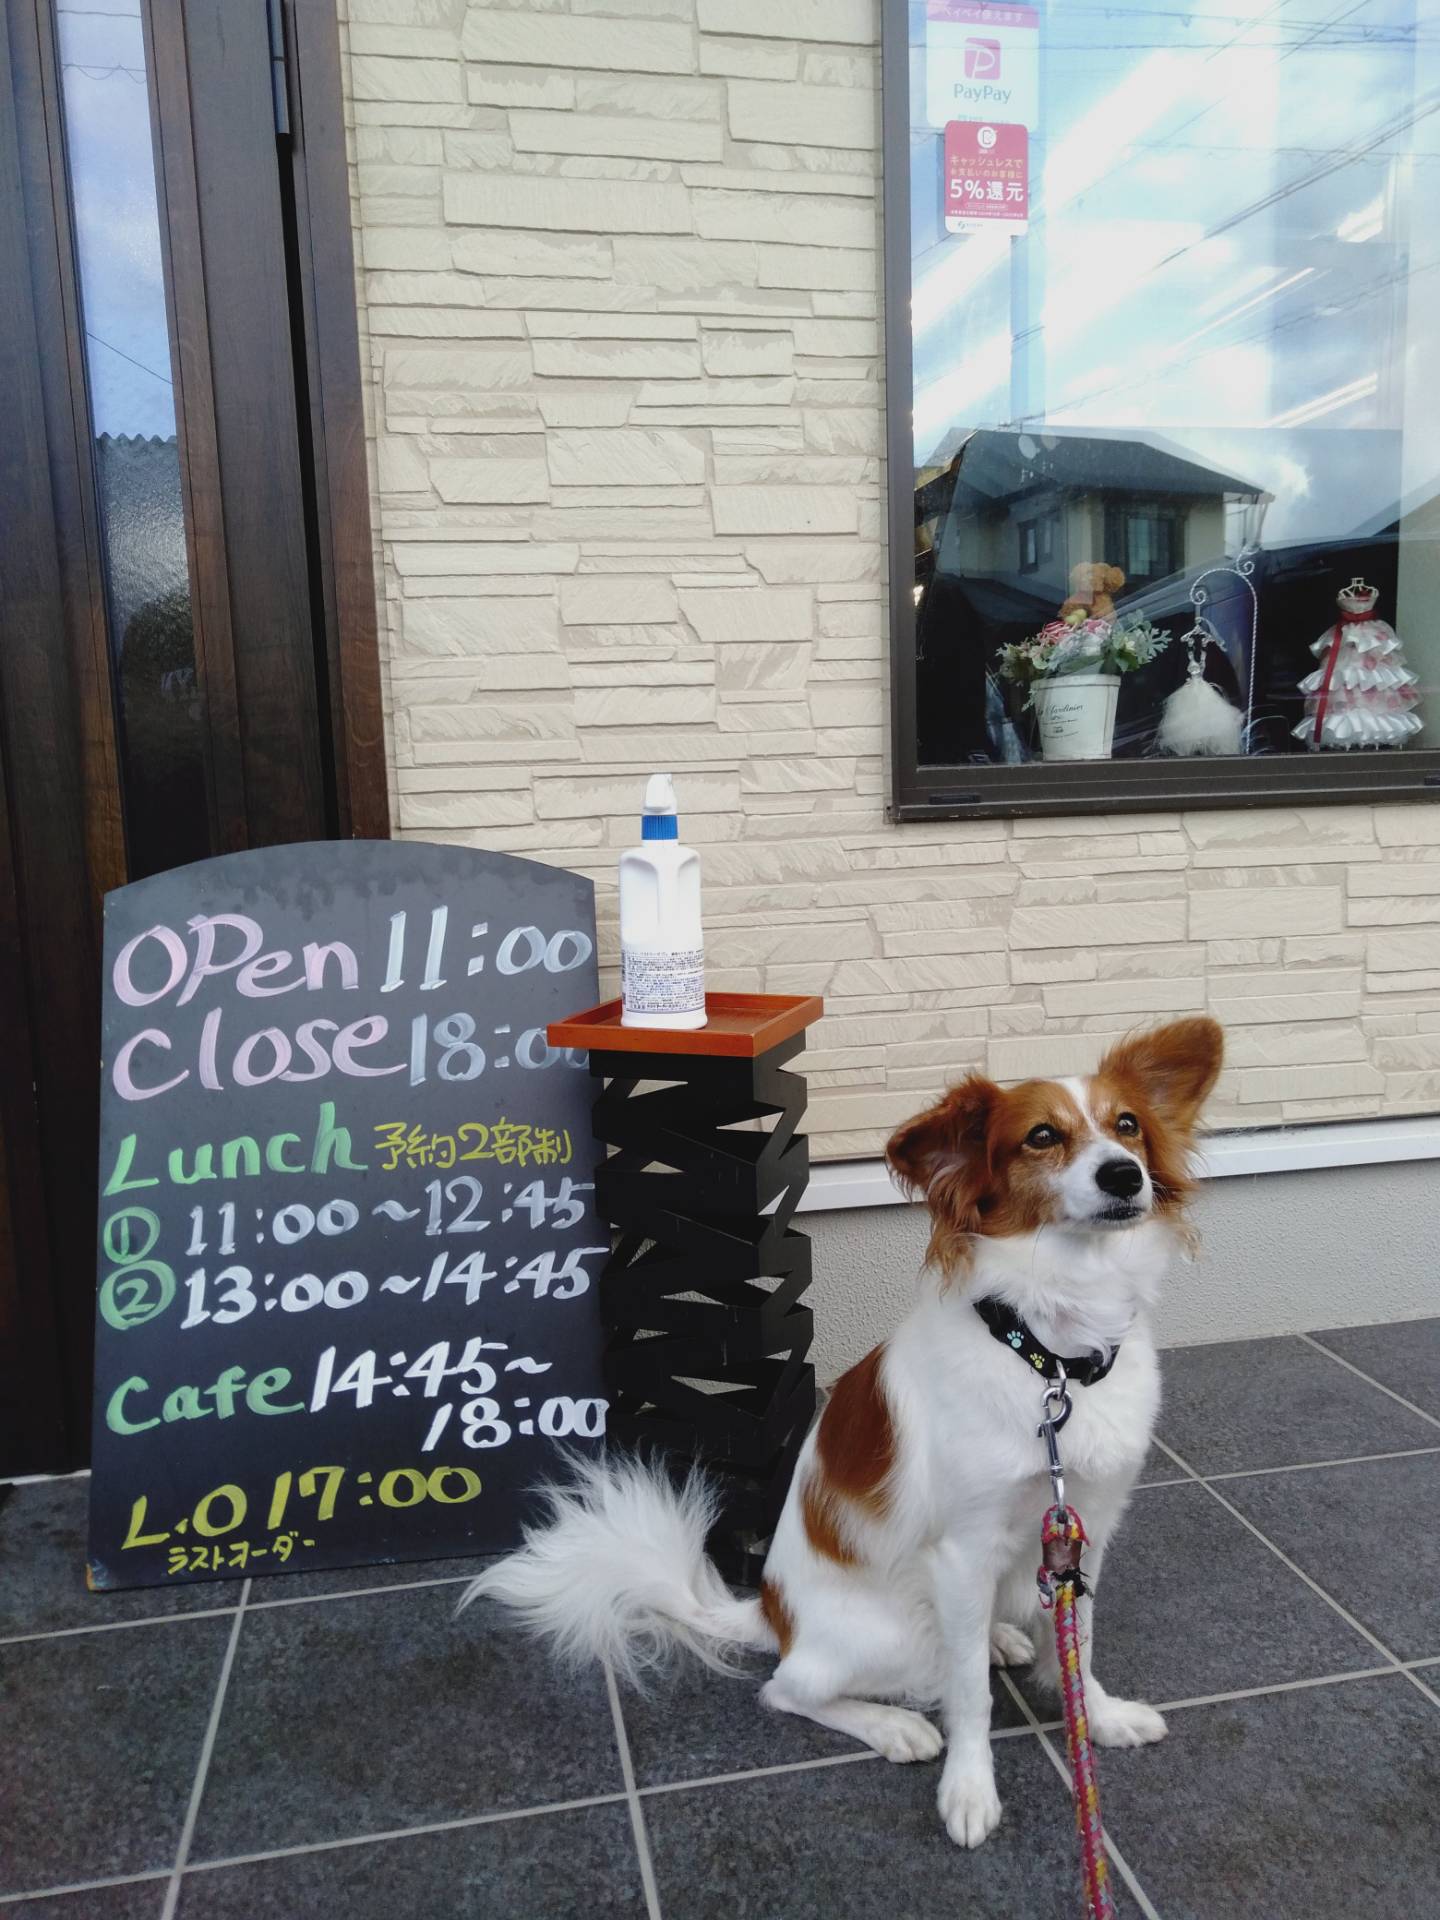 ペイペイ使えます
PayPay
キャッシュレスで
お支払いのお客様に
5%還元
OPen 11:00
close 18:00
Lunch 予約2部制
① 11:00~12:45
② 13:00~14:45
cafe 14:45~
18:00
L.O 17:00
ラストオーダー